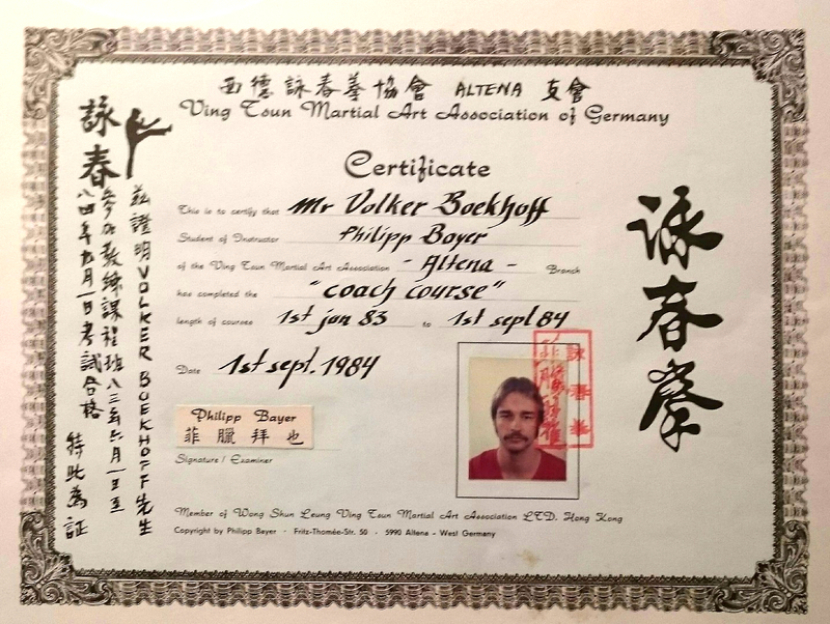 西德詠春拳協會 ALTENA 支會
Ving Tsun Martial Art Association of Germany
Certificate
This is to certify that Mr Volker Boekhoff
Student of Instructor Philipp Bayer
of the Ving Tsun Martial Art Association - Altena - Branch
has completed the "coach course"
length of courses 1st jan 83 to 1st sept 84
Date 1st sept. 1984
Philipp Bayer
菲臘拜也
Signature / Examiner
Member of Wong Shun Leung Ving Tsun Martial Art Association LTD. Hong Kong
Copyright by Philipp Bayer - Fritz-Thomée-Str. 50 - 5990 Altena - West Germany
詠春拳
詠春拳
詠春
茲證明VOLKER BOEKHOFF先生
參加教練課程班八三年六月一日至
八四年九月一日考試合格 特此為証